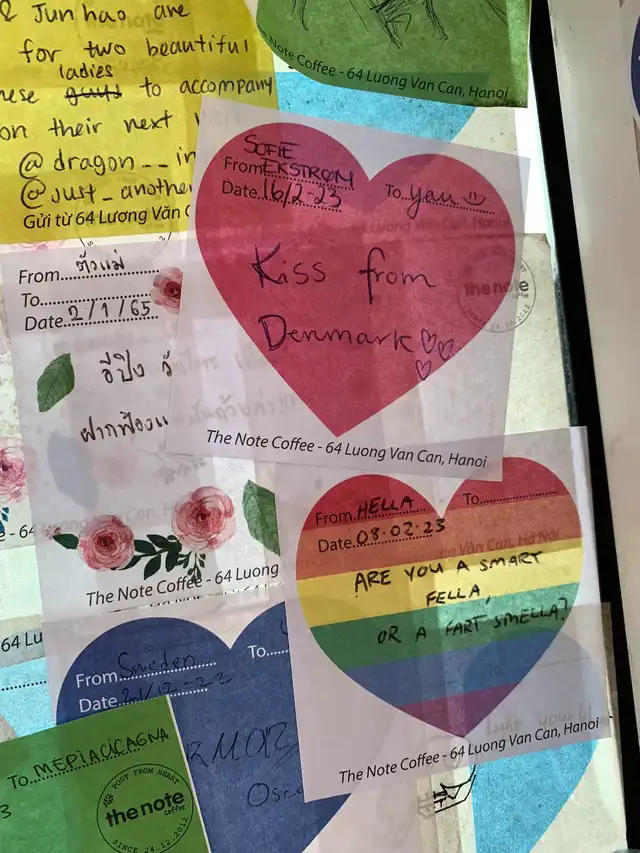 & Junhao are
for two beautiful
ladies
to accompany
on their next
@dragon__in
@just_another
Gửi từ 64 Lương Văn C
The Note Coffee - 64 Luong Van Can, Hanoi
SOFIE
From EKSTRØM
To you
Date 16/2-23
Kiss from
Denmark
The Note Coffee - 64 Luong Van Can, Hanoi
From ตัวแม่
To
Date 2/1/65
อีปิง
ฝากฟ้อง
The Note Coffee - 64 Luong
From HELLA
To
Date 08.02.23
ARE YOU A SMART
FELLA
OR A FART SMELLA?
The Note Coffee - 64 Luong Van Can, Hanoi
From Sweden
To
Date 21/12-22
To MEPIACICAGNA
POST FROM HEART
the note
coffee
SINCE 24.12.2012